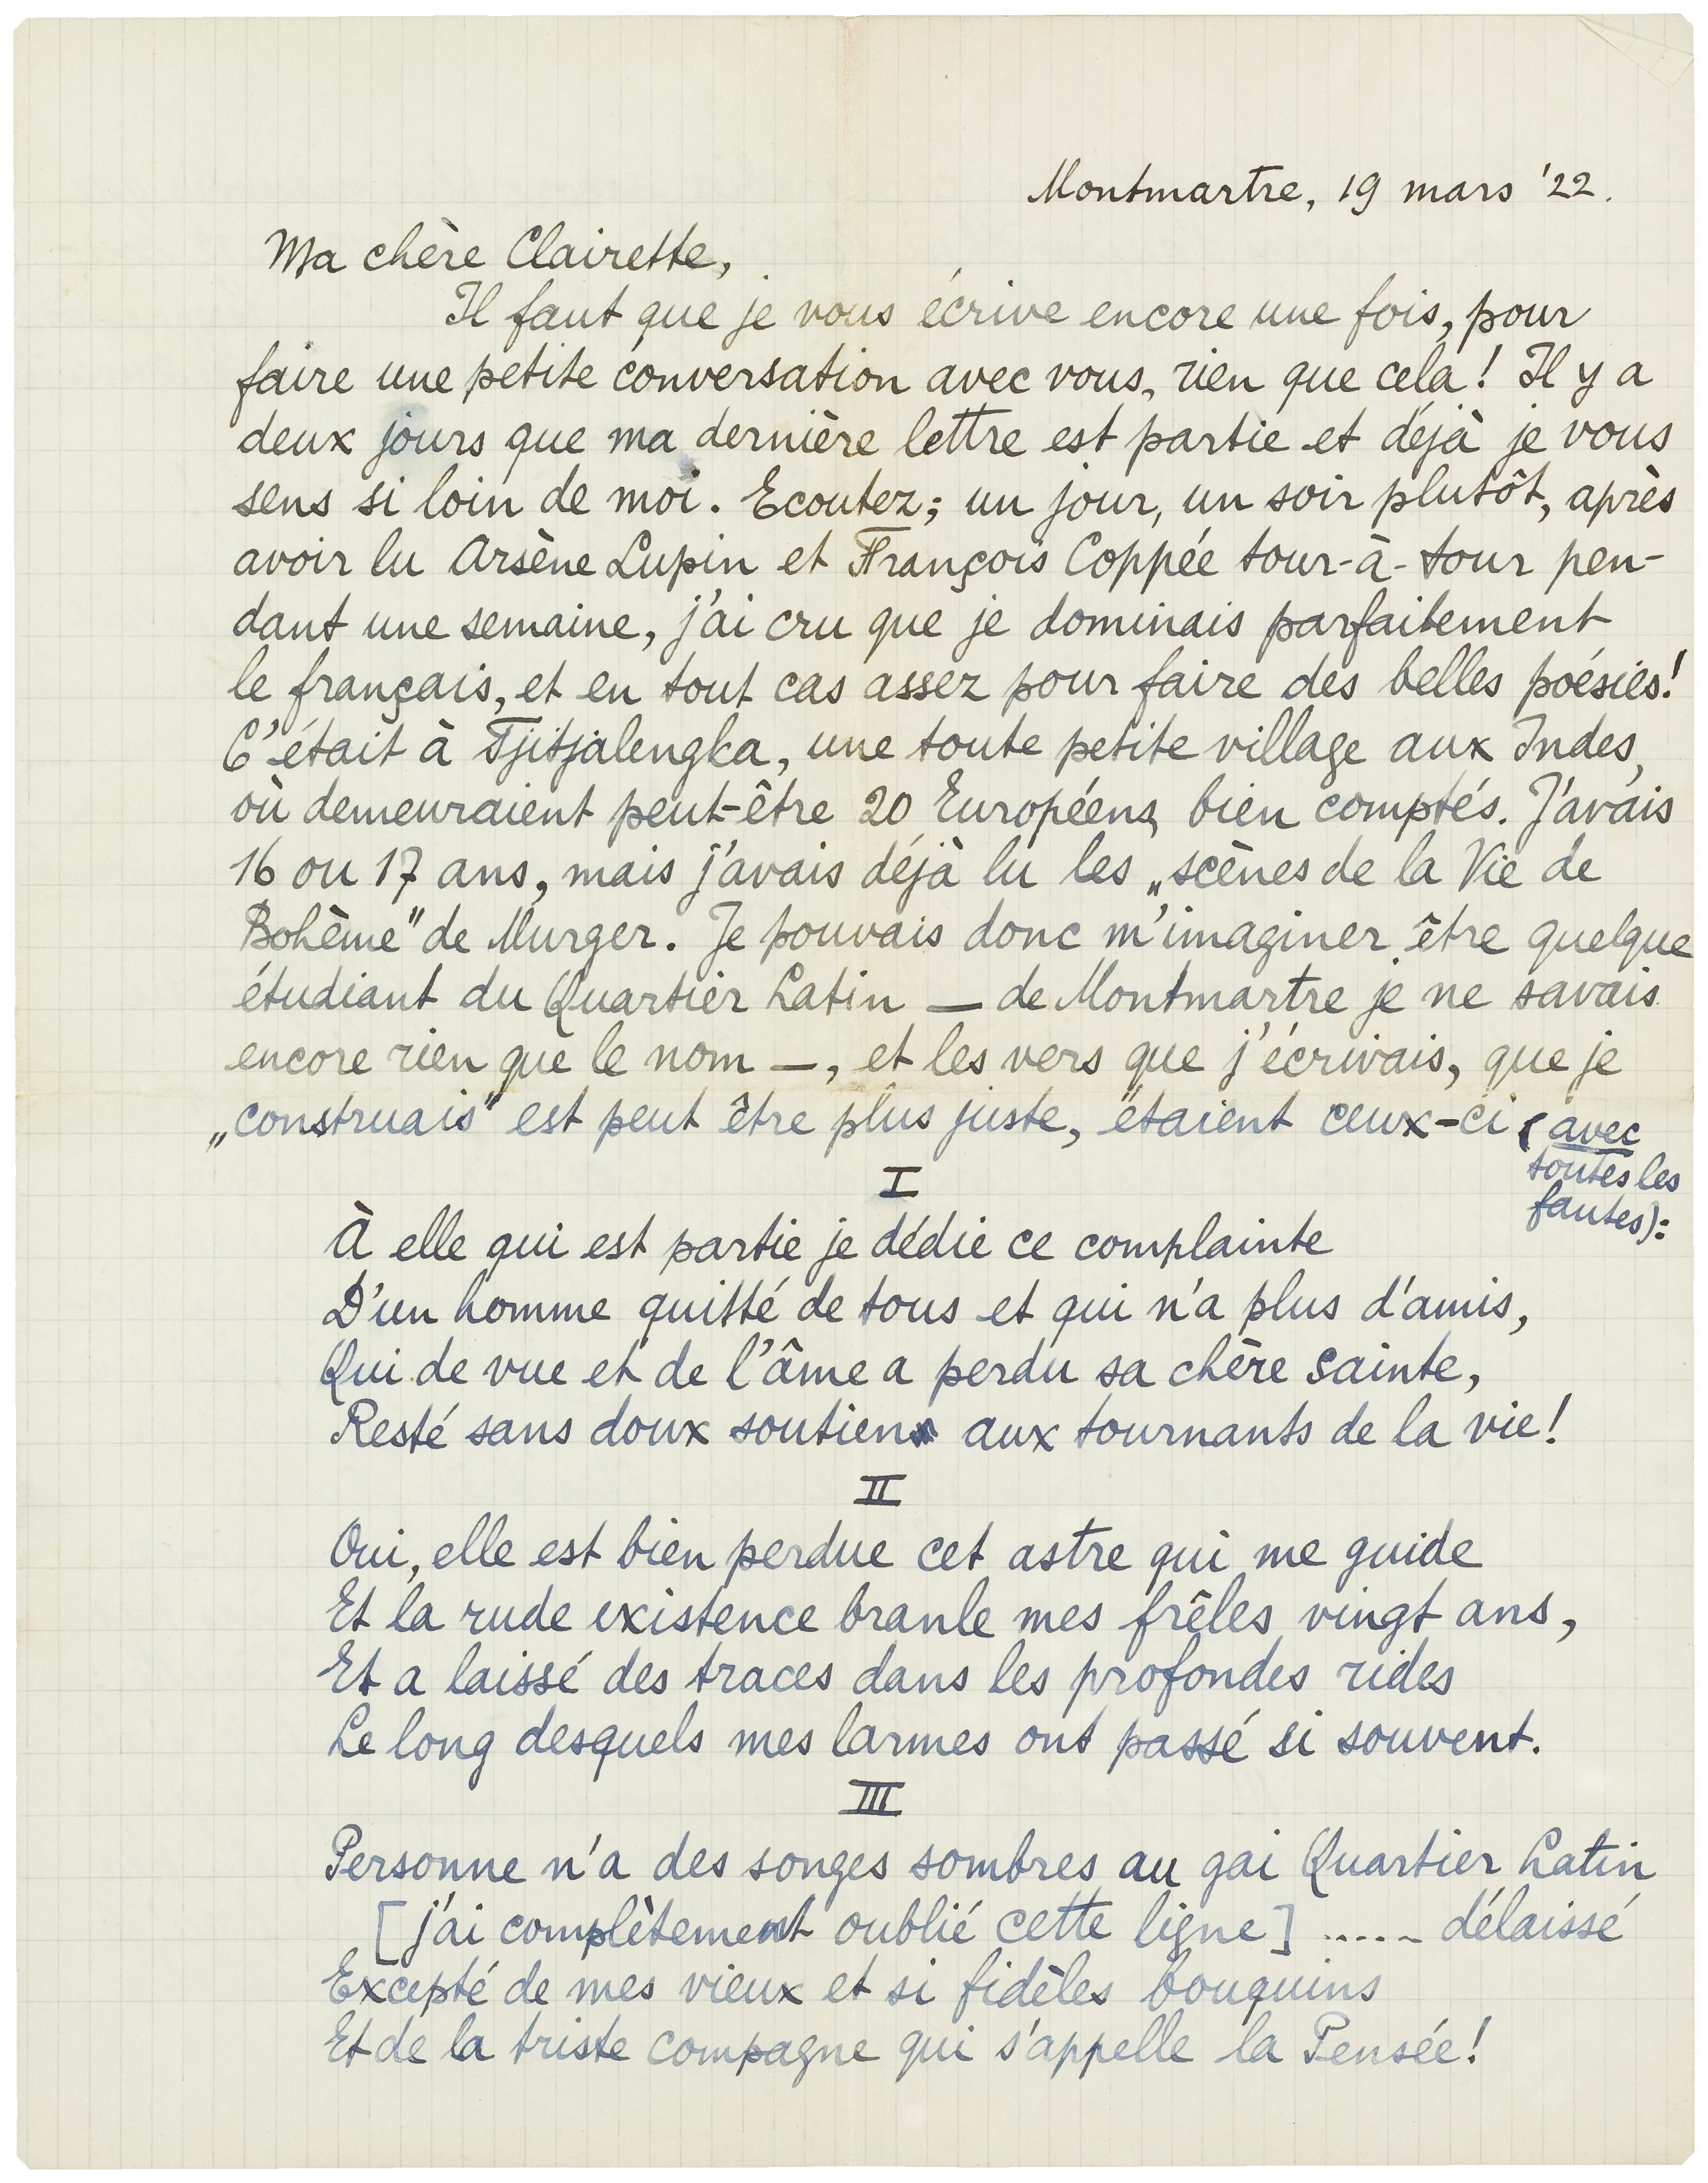 Montmartre, 19 mars '22.
Ma chère Clairette,
Il faut que je vous écrive encore une fois, pour
faire une petite conversation avec vous, rien que cela! Il y a
deux jours que ma dernière lettre est partie et déjà je vous
sens si loin de moi. Ecoutez; un jour, un soir plutôt, après
avoir lu Arsène Lupin et François Coppée tour-à-tour pen-
dant une semaine, j'ai cru que je dominais parfaitement
le français, et en tout cas assez pour faire des belles poésies!
C'était à Tjitjalengka, une toute petite village aux Indes,
où demeuraient peut-être 20 Européens, bien comptés. J'avais
16 ou 17 ans, mais j'avais déjà lu les „scènes de la Vie de
Bohème" de Murger. Je pouvais donc m'imaginer être quelque
étudiant du Quartier Latin — de Montmartre je ne savais
encore rien que le nom —, et les vers que j'écrivais, que je
„construais" est peut être plus juste, étaient ceux-ci (avec
toutes les
fautes):
I
À elle qui est partie je dédie ce complainte
D'un homme quitté de tous et qui n'a plus d'amis,
Qui de vue et de l'âme a perdu sa chère sainte,
Resté sans doux soutien aux tournants de la vie!
II
Oui, elle est bien perdue cet astre qui me guide
Et la rude existence branle mes frêles vingt ans,
Et a laissé des traces dans les profondes rides
Le long desquels mes larmes ont passé si souvent.
III
Personne n'a des songes sombres au gai Quartier Latin
[j'ai complètement oublié cette ligne] ..... délaissé
Excepté de mes vieux et si fidèles bouquins
Et de la triste compagne qui s'appelle la Pensée!